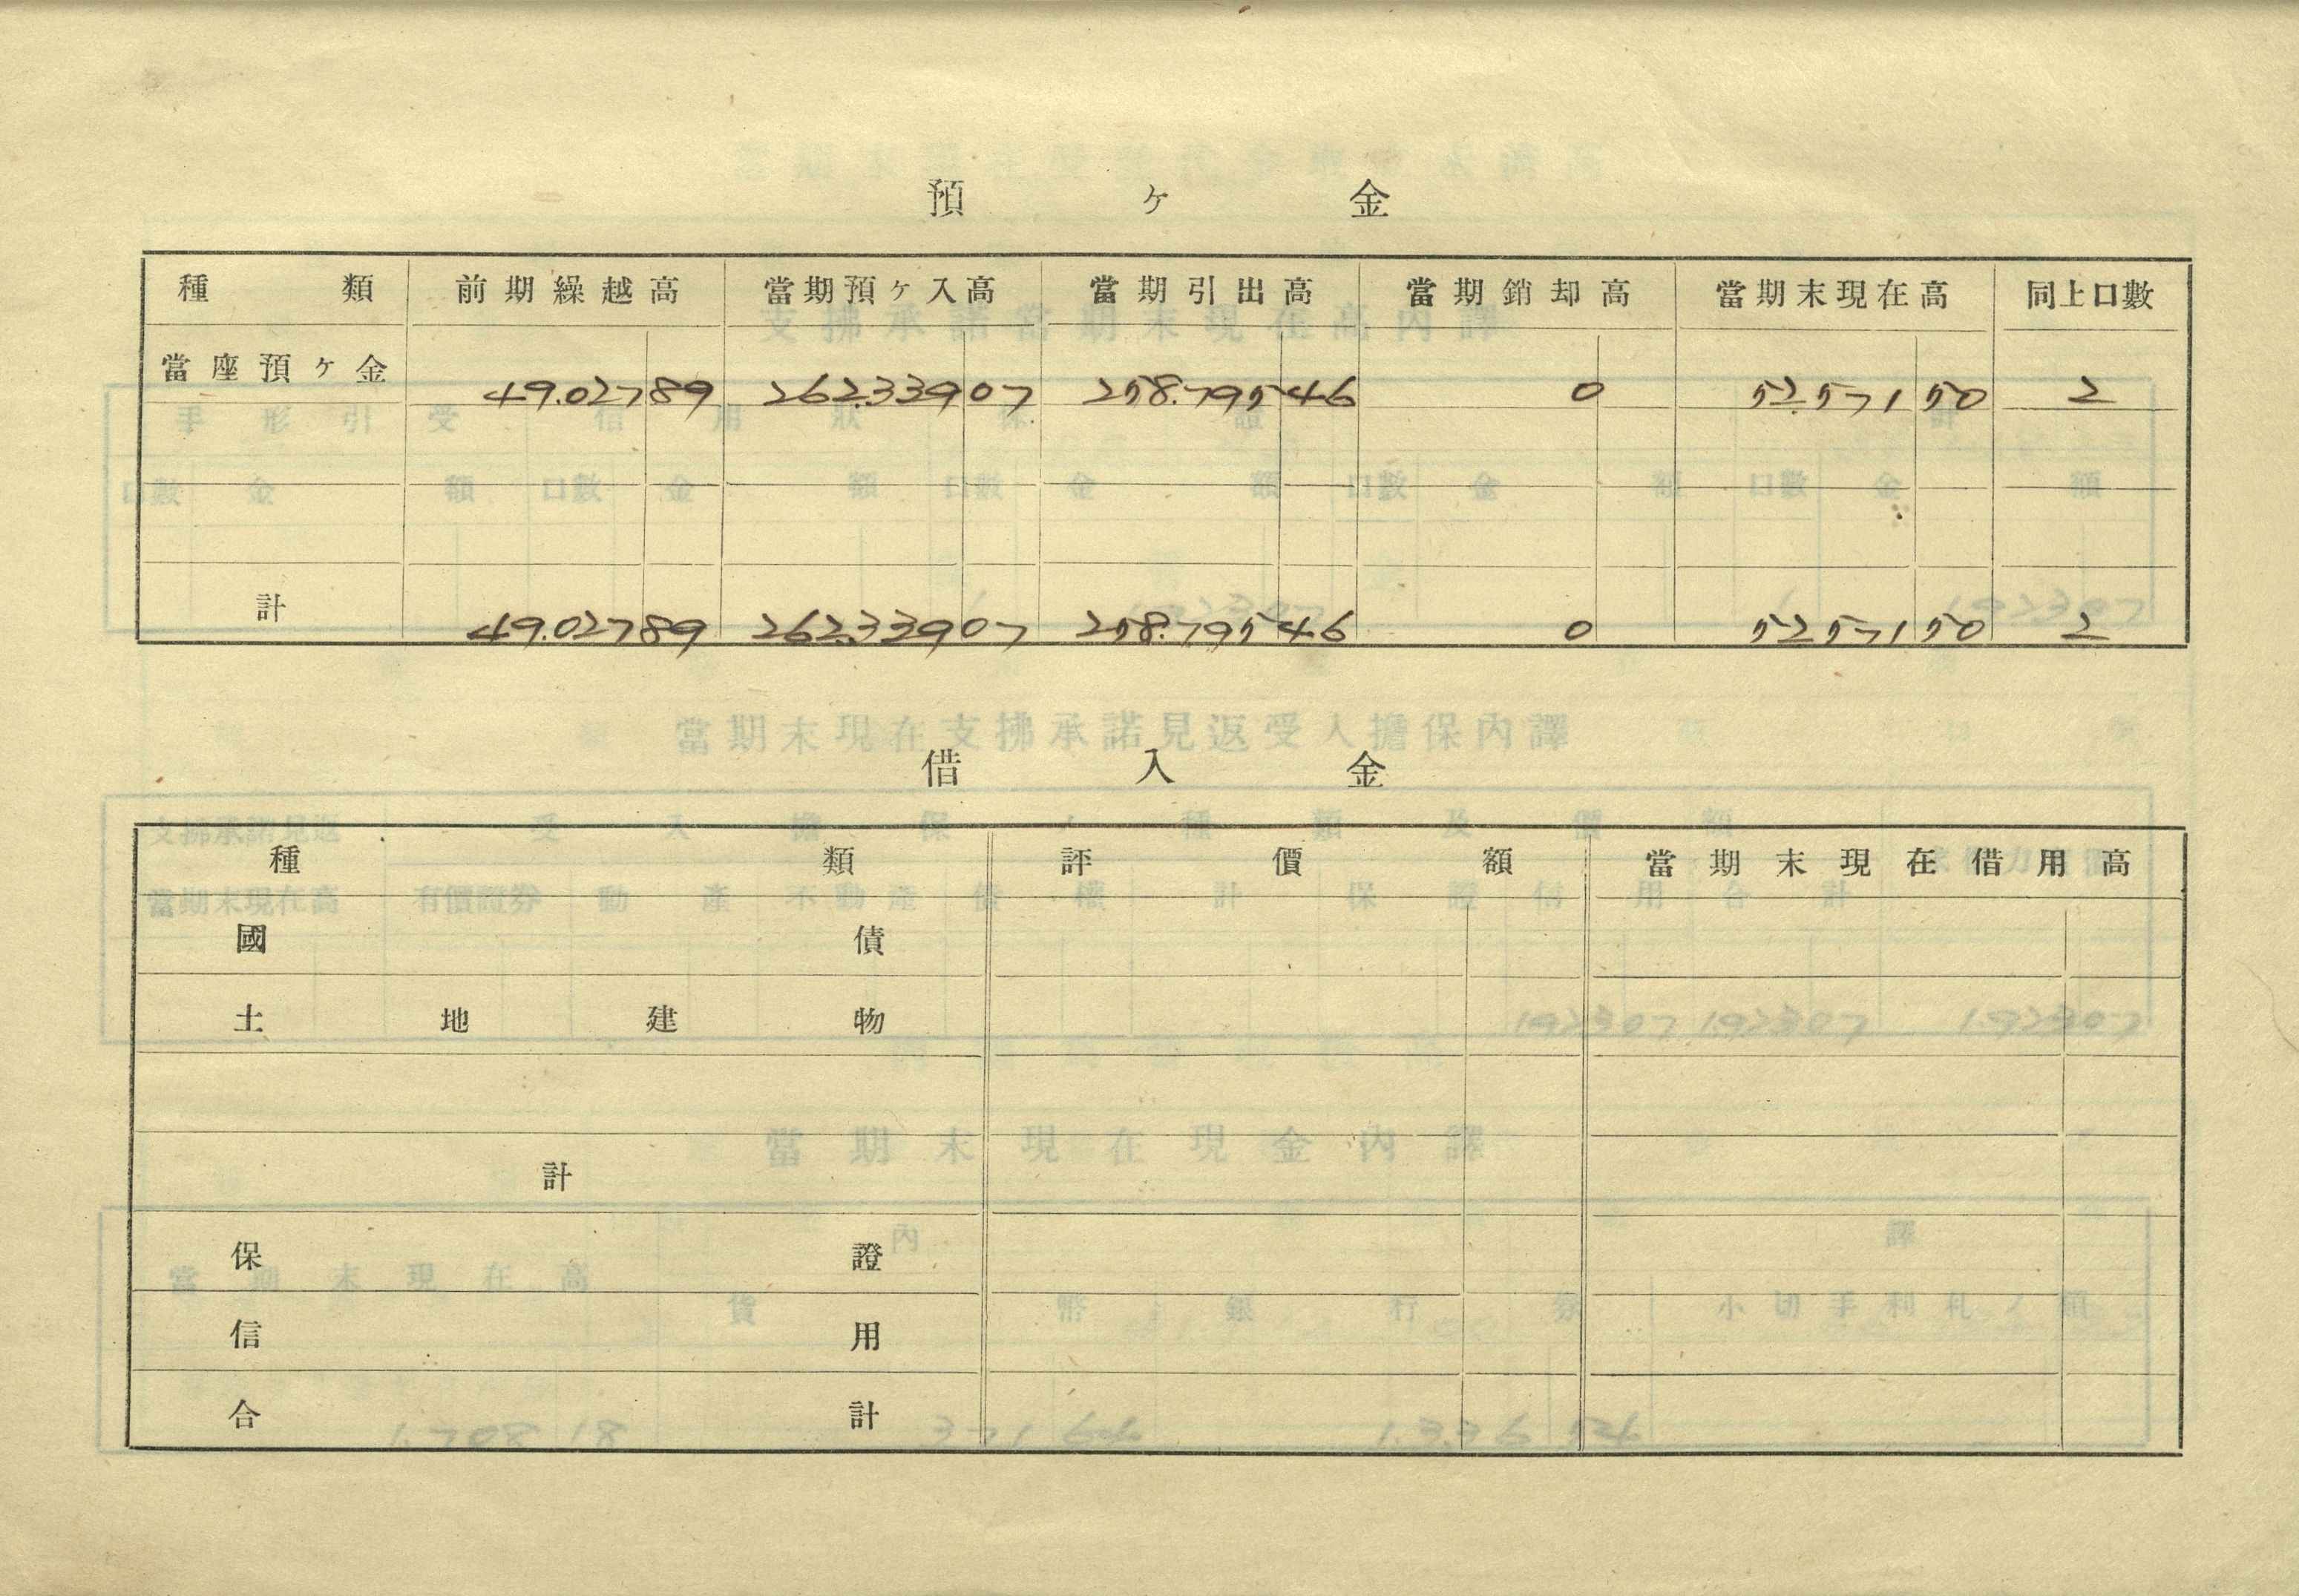 預ヶ金
種類 前期繰越高 當期預ヶ入高 當期引出高 當期銷却高 當期末現在高 同上口數
當座預ヶ金 49.027 89 262.339 07 258.795 46 0 52.571 50 2
計 49.027 89 262.339 07 258.795 46 0 52.571 50 2
借入金
種類 評價額 當期末現在借用高
國債
土地建物
計
保證
信用
合計